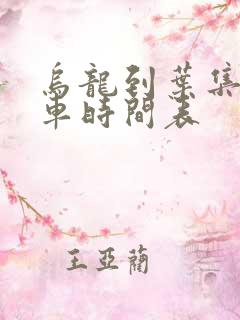 烏龍到葉集
車時間表
王亞蘭